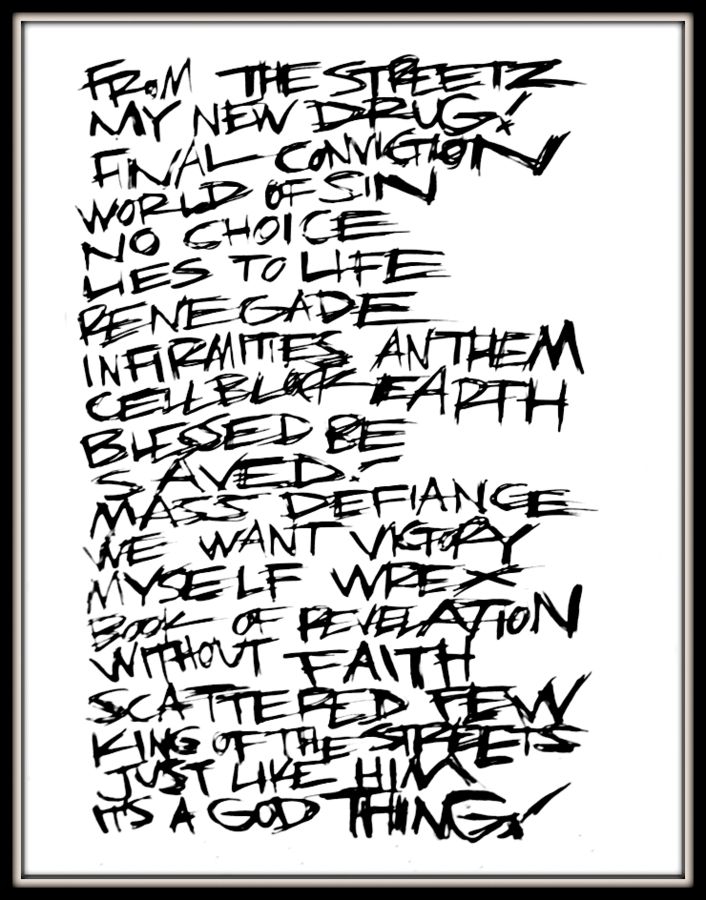 FROM THE STREETZ
MY NEW DRUG!
FINAL CONVICTION
WORLD OF SIN
NO CHOICE
LIES TO LIFE
RENEGADE
INFIRMITIES ANTHEM
CELLBLOCK EARTH
BLESSED BE
SAVED!
MASS DEFIANCE
WE WANT VICTORY
MYSELF WREX
BOOK OF REVELATION
WITHOUT FAITH
SCATTERED FEW
KING OF THE STREETS
JUST LIKE HIM
ITS A GOD THING!